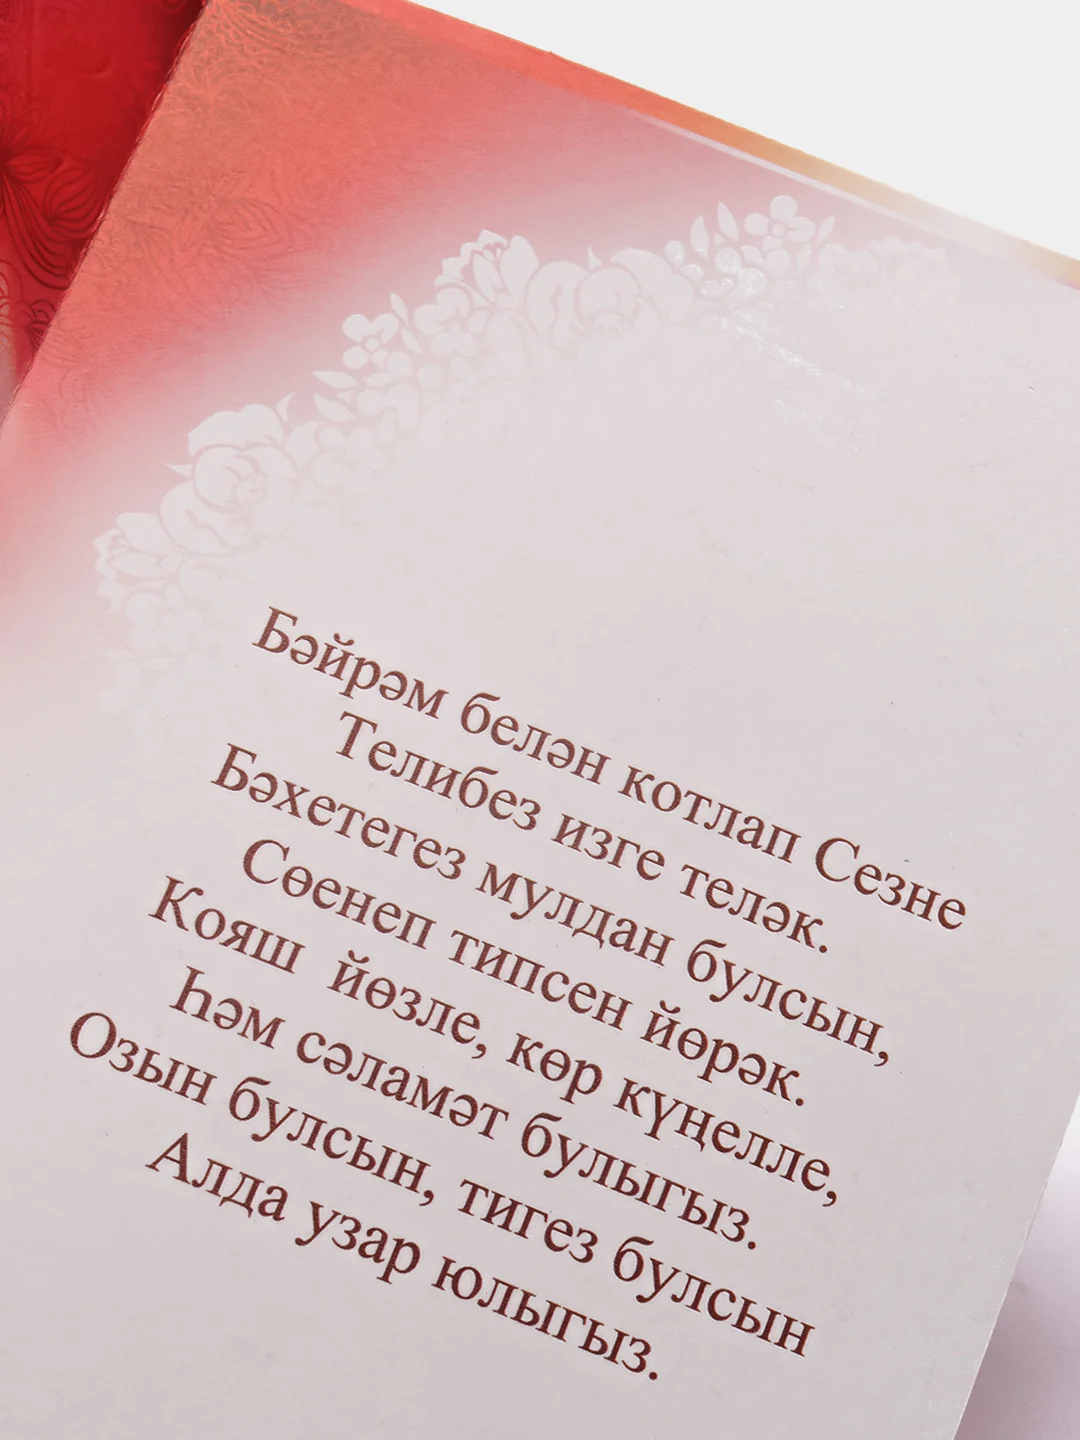 Бәйрәм белән котлап Сезне
Телибез изге теләк.
Бәхетегез мулдан булсын,
Сөенеп типсен йөрәк.
Кояш йөзле, көр күңелле,
Һәм сәламәт булыгыз.
Озын булсын, тигез булсын
Алда узар юлыгыз.